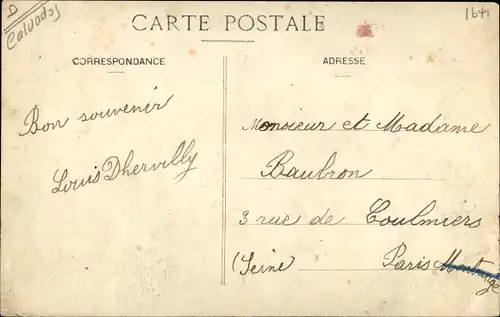 D
Calvados
1641
CARTE POSTALE
CORRESPONDANCE
ADRESSE
Bon souvenir
Louis Dhervilly
Monsieur et Madame
Baubron
3 rue de Coulmiers
Paris Montrouge
(Seine